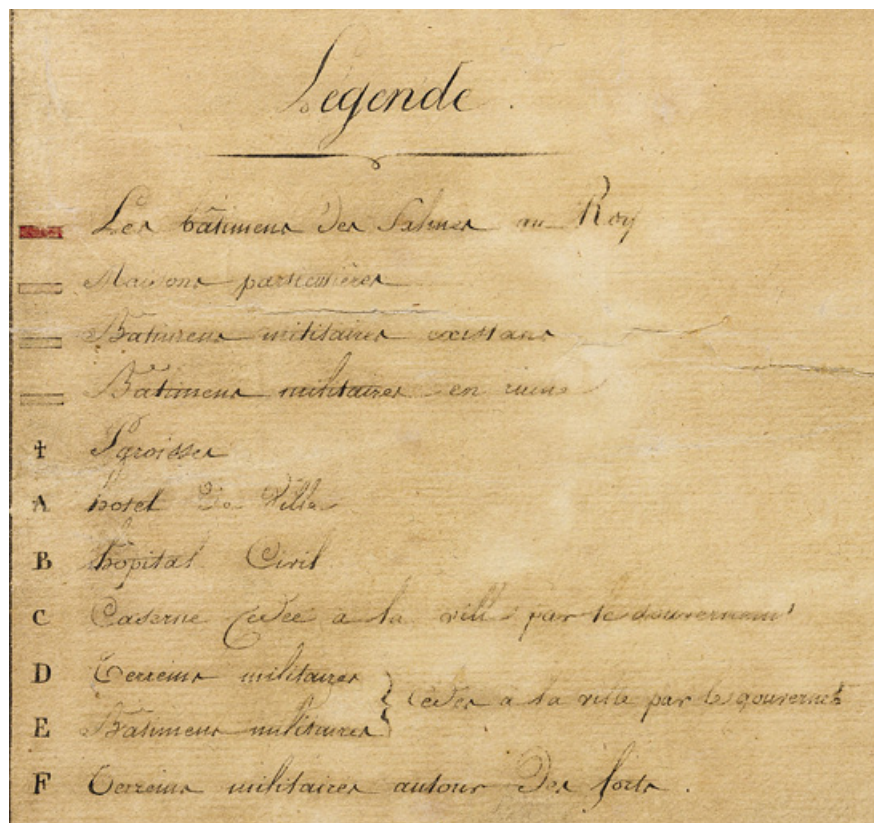 Légende.
Les bâtimens des Salines au Roy
Maisons particulières
Bâtimens militaires existans
Bâtimens militaires en ruine
✝ Paroisse
A hotel de Ville
B hôpital Civil
C Caserne Cédée a la ville par le Gouvernem.t
D Terreins militaires
cédés a la ville par le gouvernet
E Bâtimens militaires
F Terreins militaires autour des forts.